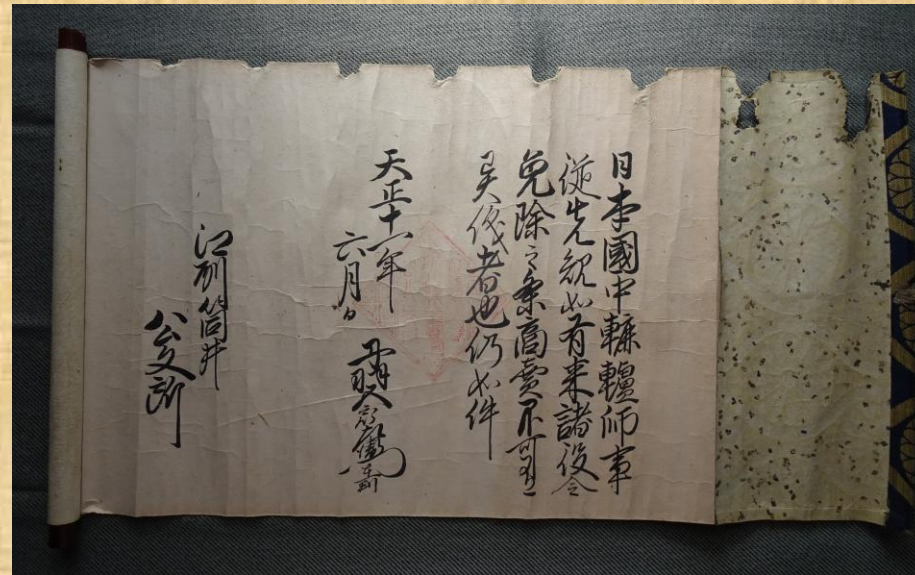 日本國中轆轤師事
従先規如有来諸役令
免除之条商賣不可有
異儀者也仍如件
天正十一年
六月日
江州筒井
公文所